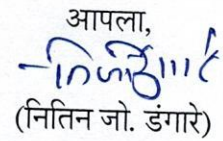 आपला,
(नितिन जो. डंगारे)